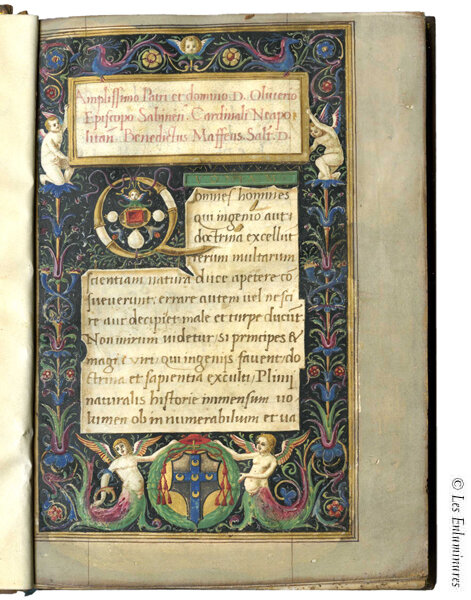 Amplissimo Patri et domino D. Oliverio
Episcopo Sabinen. Cardinali Neapo
litan. Benedictus Maffeus. Salt. D.
Omnes homines
qui ingenio aut
doctrina excellūt
rerum multarum
scientiam natura duce apetere cō
sueverunt, errare autem vel nesci
re aut decipi et male et turpe ducūt.
Non mirum videtur, si principes &
magi viri, qui ingeniis favent, do
ctrina et sapientia exculti, Plinii
naturalis historie immensum vo
lumen ob innumerabilium et va
© Les Enluminures